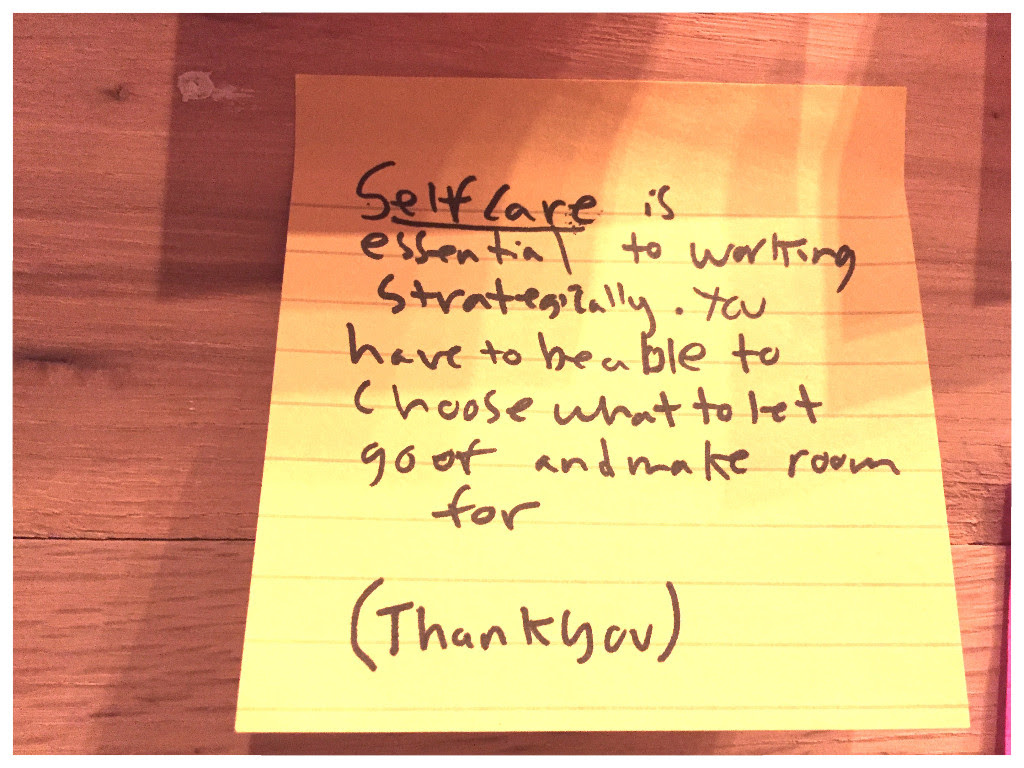 Self Care is
essential to working
strategically. You
have to be able to
choose what to let
go of and make room
for
(Thank you)